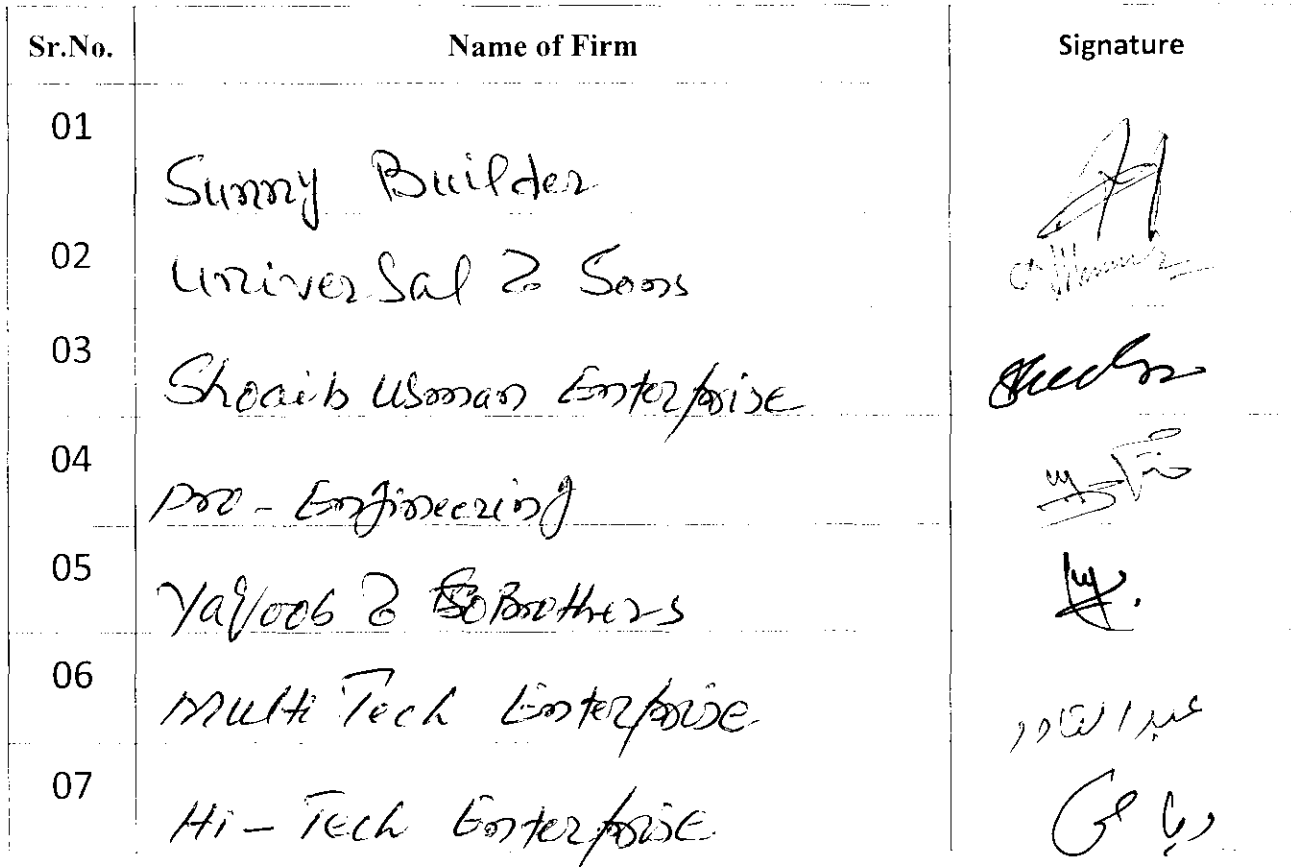 Sr.No. Name of Firm Signature
01 Sunny Builder
02 Universal & Sons
03 Shoaib Usman Enterprise
04 Pro - Engineering
05 Yaqoob & Brothers
06 Multi Tech Enterprise عبدالقادر
07 Hi - Tech Enterprise